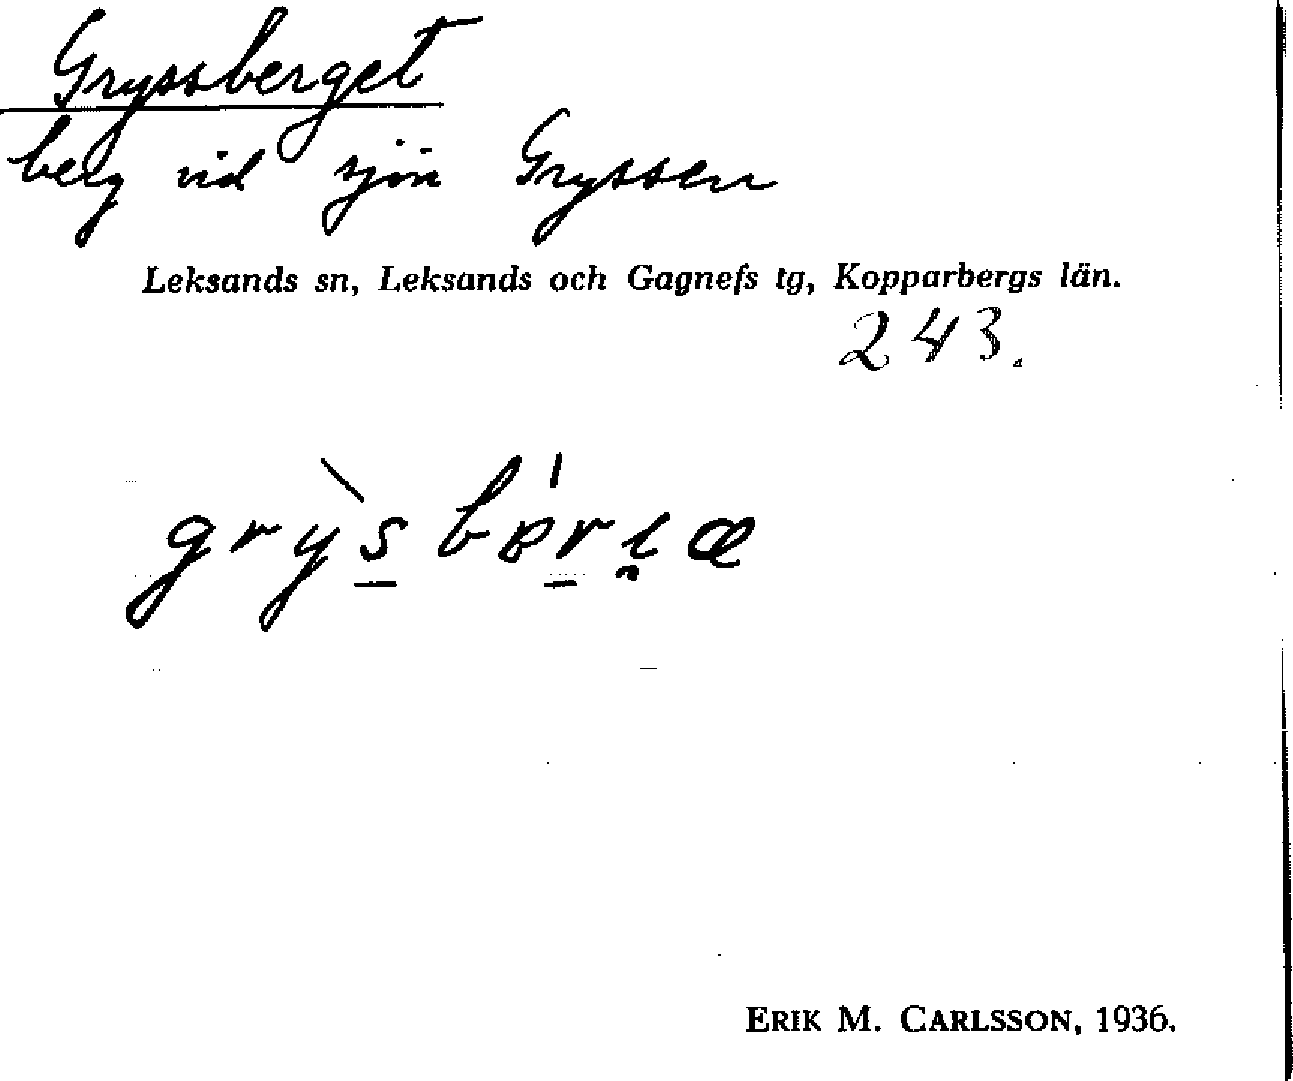 Gryssberget
berg vid sjön Gryssen
Leksands sn, Leksands och Gagnefs tg, Kopparbergs län.
243.
ERIK M. CARLSSON, 1936.